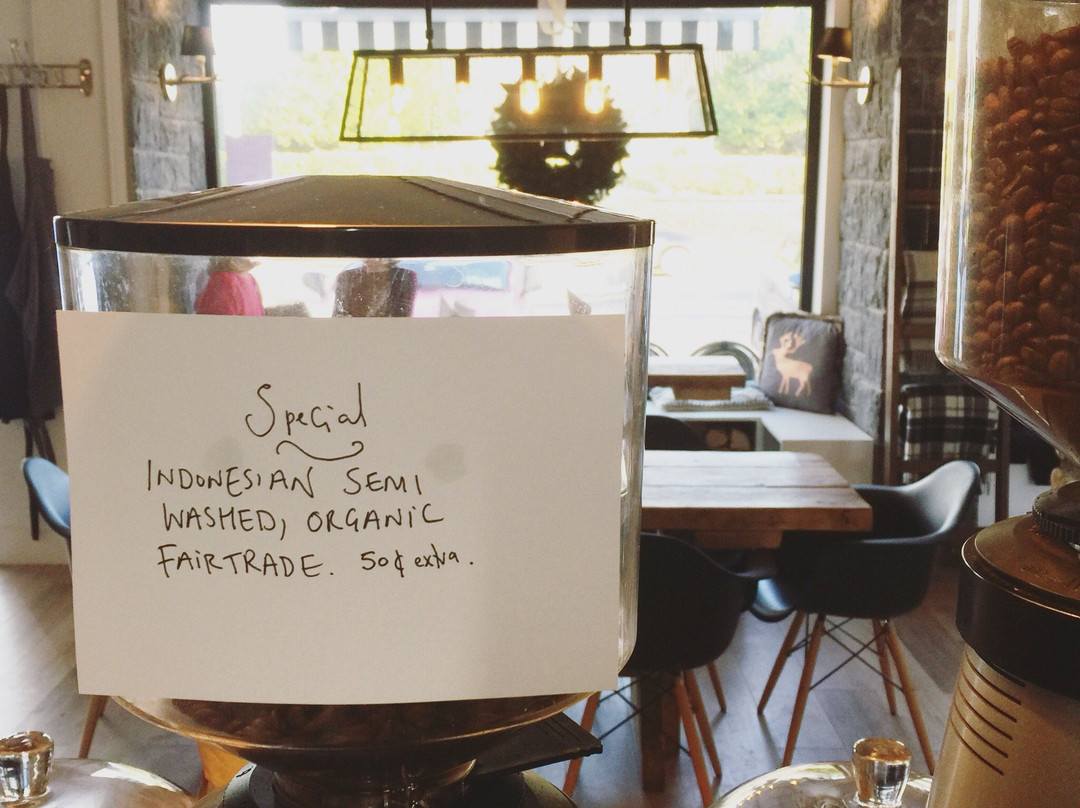 Special
INDONESIAN SEMI
WASHED, ORGANIC
FAIRTRADE. 50¢ extra.